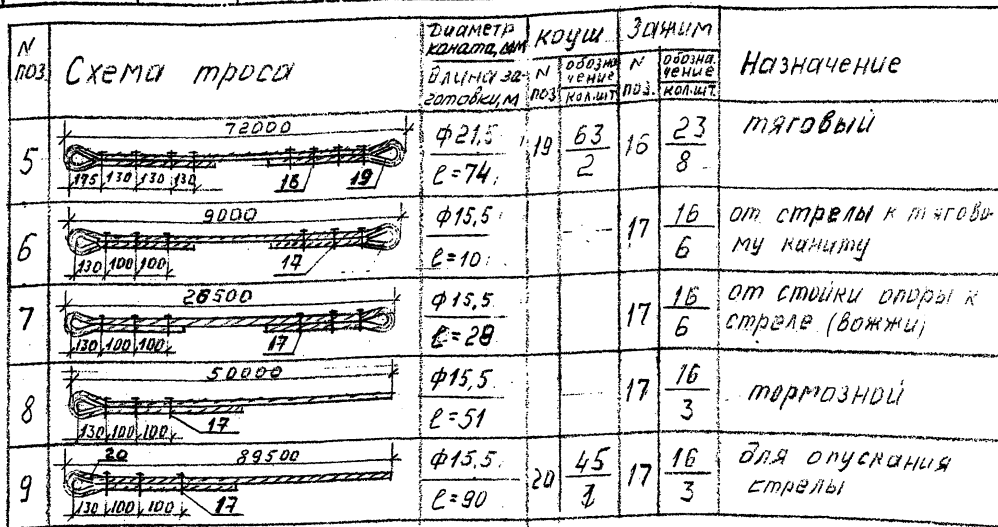 N поз. Схема троса Диаметр каната, мм Длина заготовки, м коуш Зажим Назначение
N поз обозначение кол.шт N поз. обозначение кол.шт.
5 72000 195 130 130 130 16 19 ф21,5 ℓ=74 19 63 2 16 23 8 тяговый
6 9000 130 100 100 17 ф15,5 ℓ=10 17 16 6 от стрелы к тягово-
му канату
7 28500 130 100 100 17 ф15,5 ℓ=28 17 16 6 от стойки опоры к
стреле (вожжи)
8 50000 130 100 100 17 ф15,5 ℓ=51 17 16 3 тормозной
9 20 89500 130 100 100 17 ф15,5 ℓ=90 20 45 1 17 16 3 для опускания
стрелы